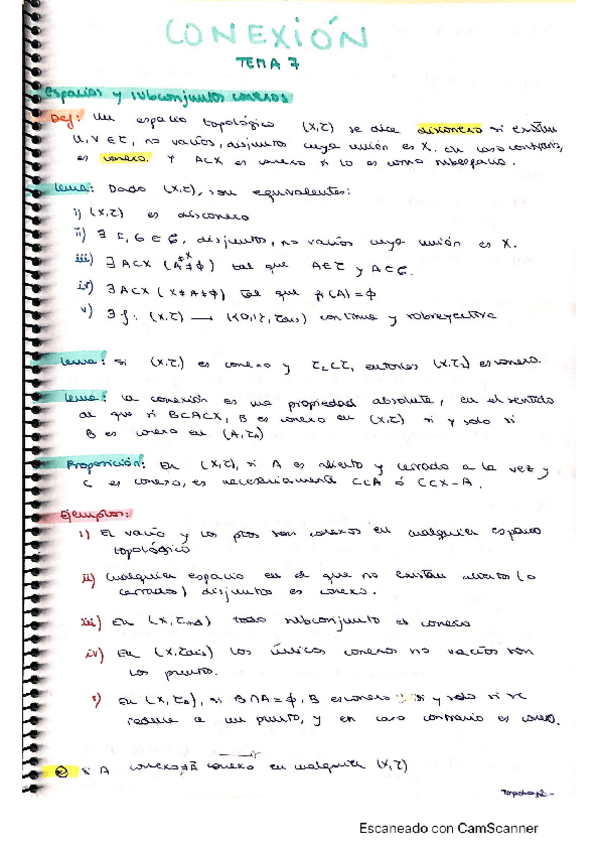 CONEXIÓN
TEMA 7
Espacios y subconjuntos conexos
Def: Un espacio topológico (X,τ) se dice disconexo si existen
U, V ∈ τ, no vacíos, disjuntos cuya unión es X. En caso contrario,
es conexo. Y A⊂X es conexo si lo es como subespacio.
Lema: Dado (X,τ), son equivalentes:
i) (X,τ) es disconexo
ii) ∃ F, G ∈ C, disjuntos, no vacíos cuya unión es X.
iii) ∃ A⊂X (A≠∅) tal que A∈τ y A∈C.
≠X
iv) ∃ A⊂X (X≠A≠∅) tal que fr(A)=∅
v) ∃ f: (X,τ) → ({0,1}, τdis) continua y sobreyectiva
Lema: si (X,τ₁) es conexo y τ₂⊂τ, entonces (X,τ₂) es conexo.
Lema: La conexión es una propiedad absoluta, en el sentido
de que si B⊂A⊂X, B es conexo en (X,τ) si y solo si
B es conexo en (A,τA)
Proposición: En (X,τ), si A es abierto y cerrado a la vez y
C es conexo, es necesariamente C⊂A ó C⊂X-A.
Ejemplos:
i) El vacío y los ptos son conexos en cualquier espacio
topológico
ii) Cualquier espacio en el que no existan abiertos (o
cerrados) disjuntos es conexo.
iii) En (X,τind) todo subconjunto es conexo
iv) En (X,τdis) los únicos conexos no vacíos son
los puntos.
v) En (X,τA), si B∩A=∅, B es conexo si y solo si se
reduce a un punto, y en caso contrario es conexo.
A conexo Ā conexo en cualquier (X,τ)
Escaneado con CamScanner